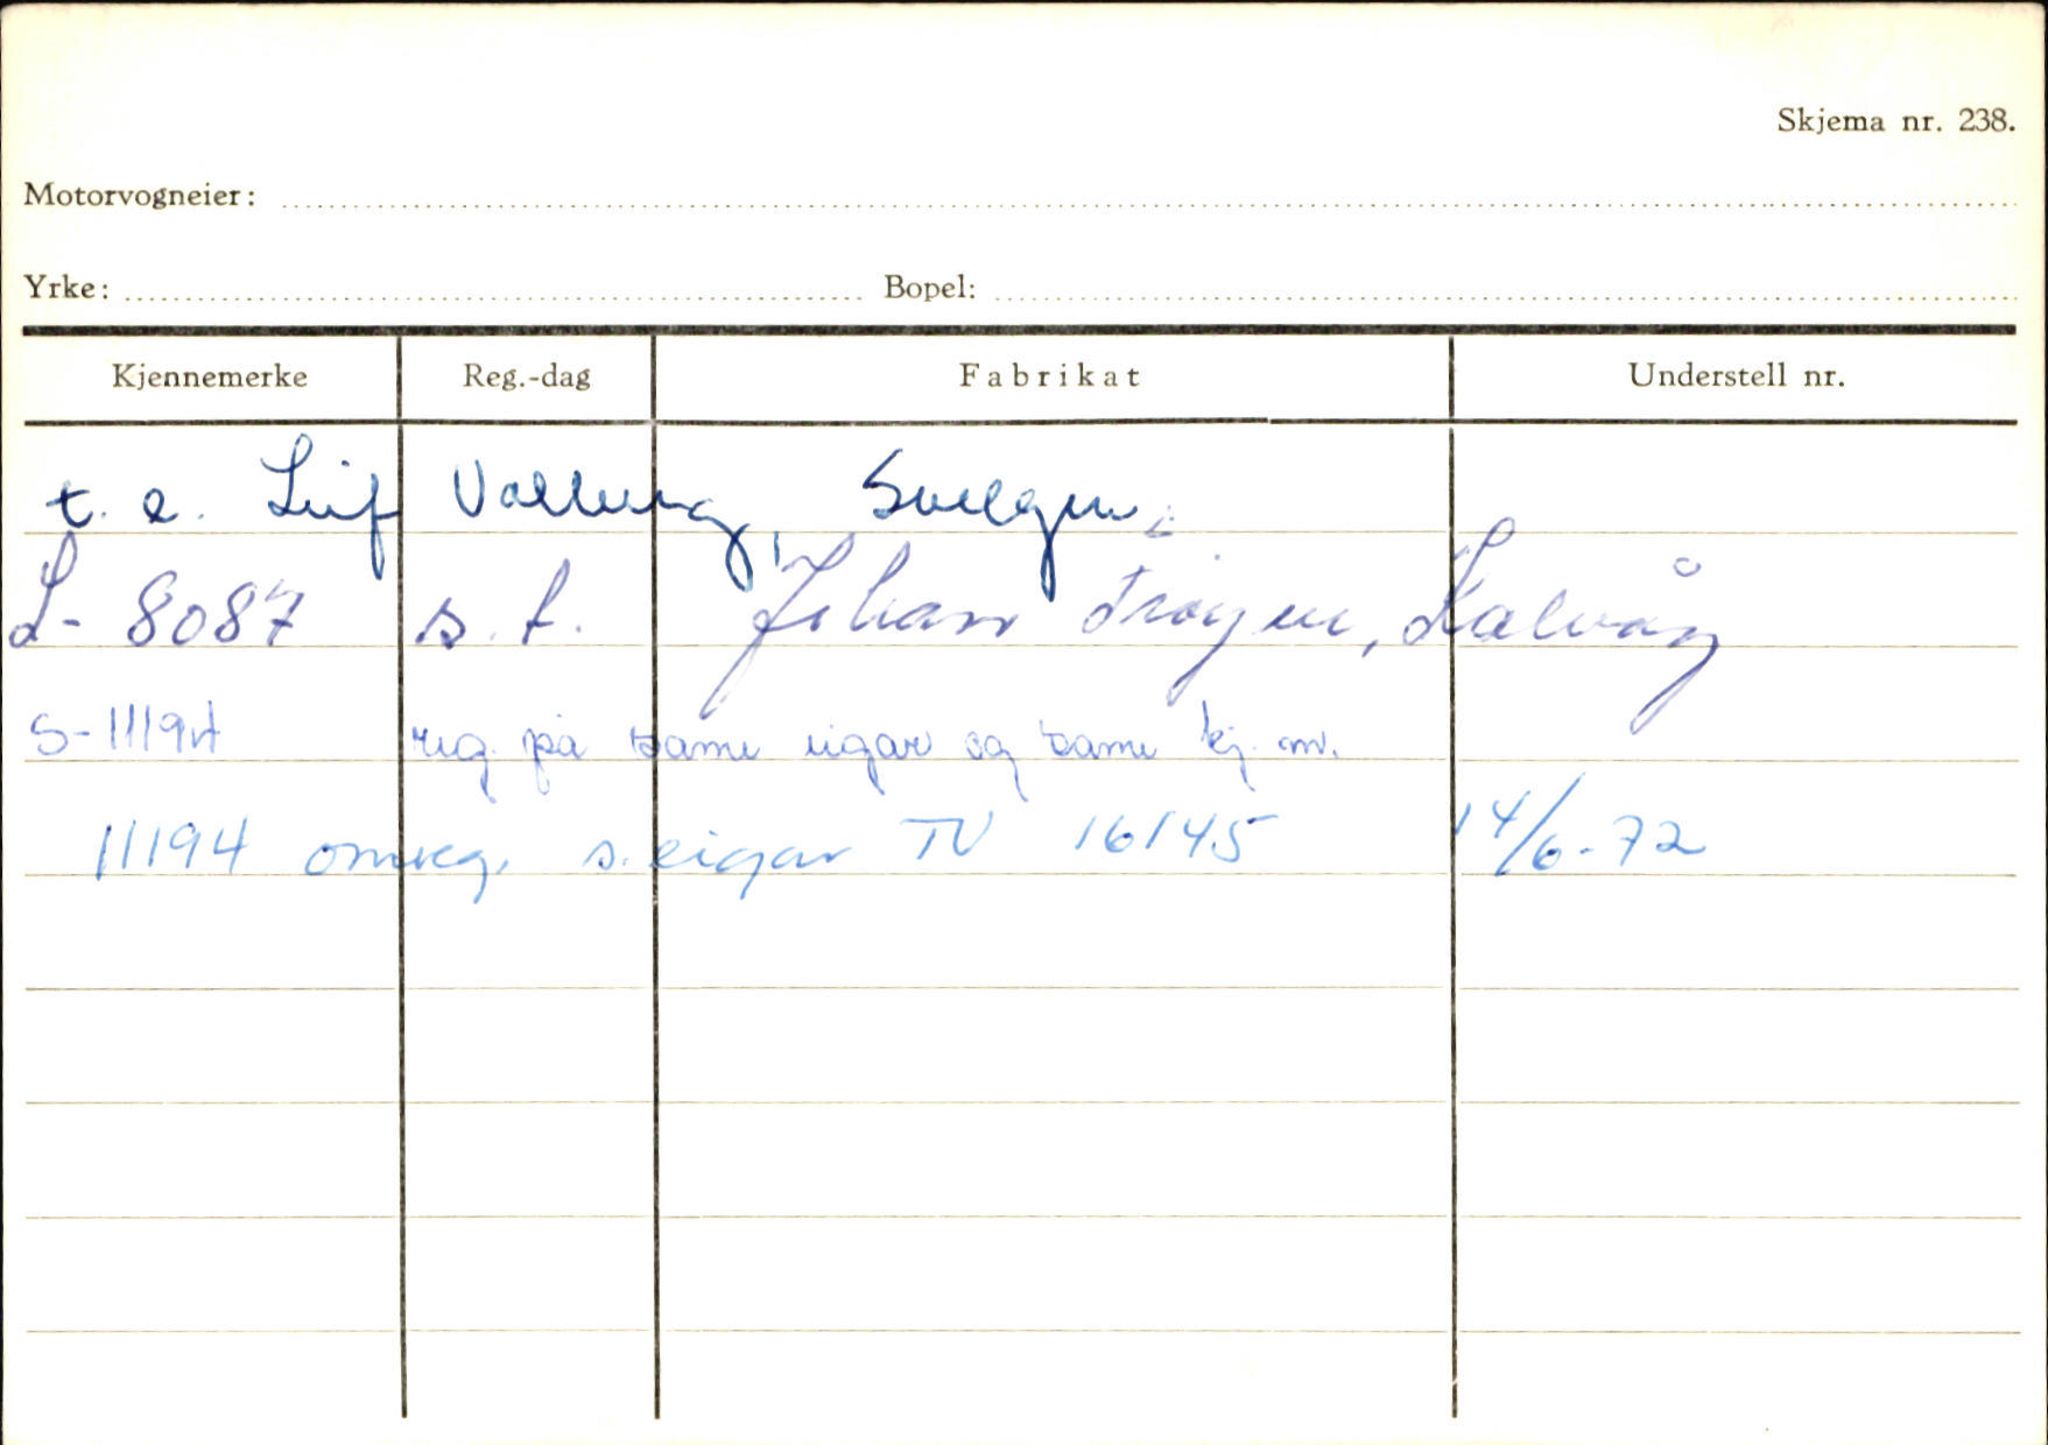 Skjema nr. 238.
Motorvogneier:
Yrke: Bopel:
Kjennemerke Reg.-dag Fabrikat Understell nr.
t. e. Leif Svelgen
L- 8087 s. t. Johan Trøyen, Kalvåg
S-11194 reg. på same eigar og same kj. m.
11194 omreg. s. eigar TV 16145 14/6-72